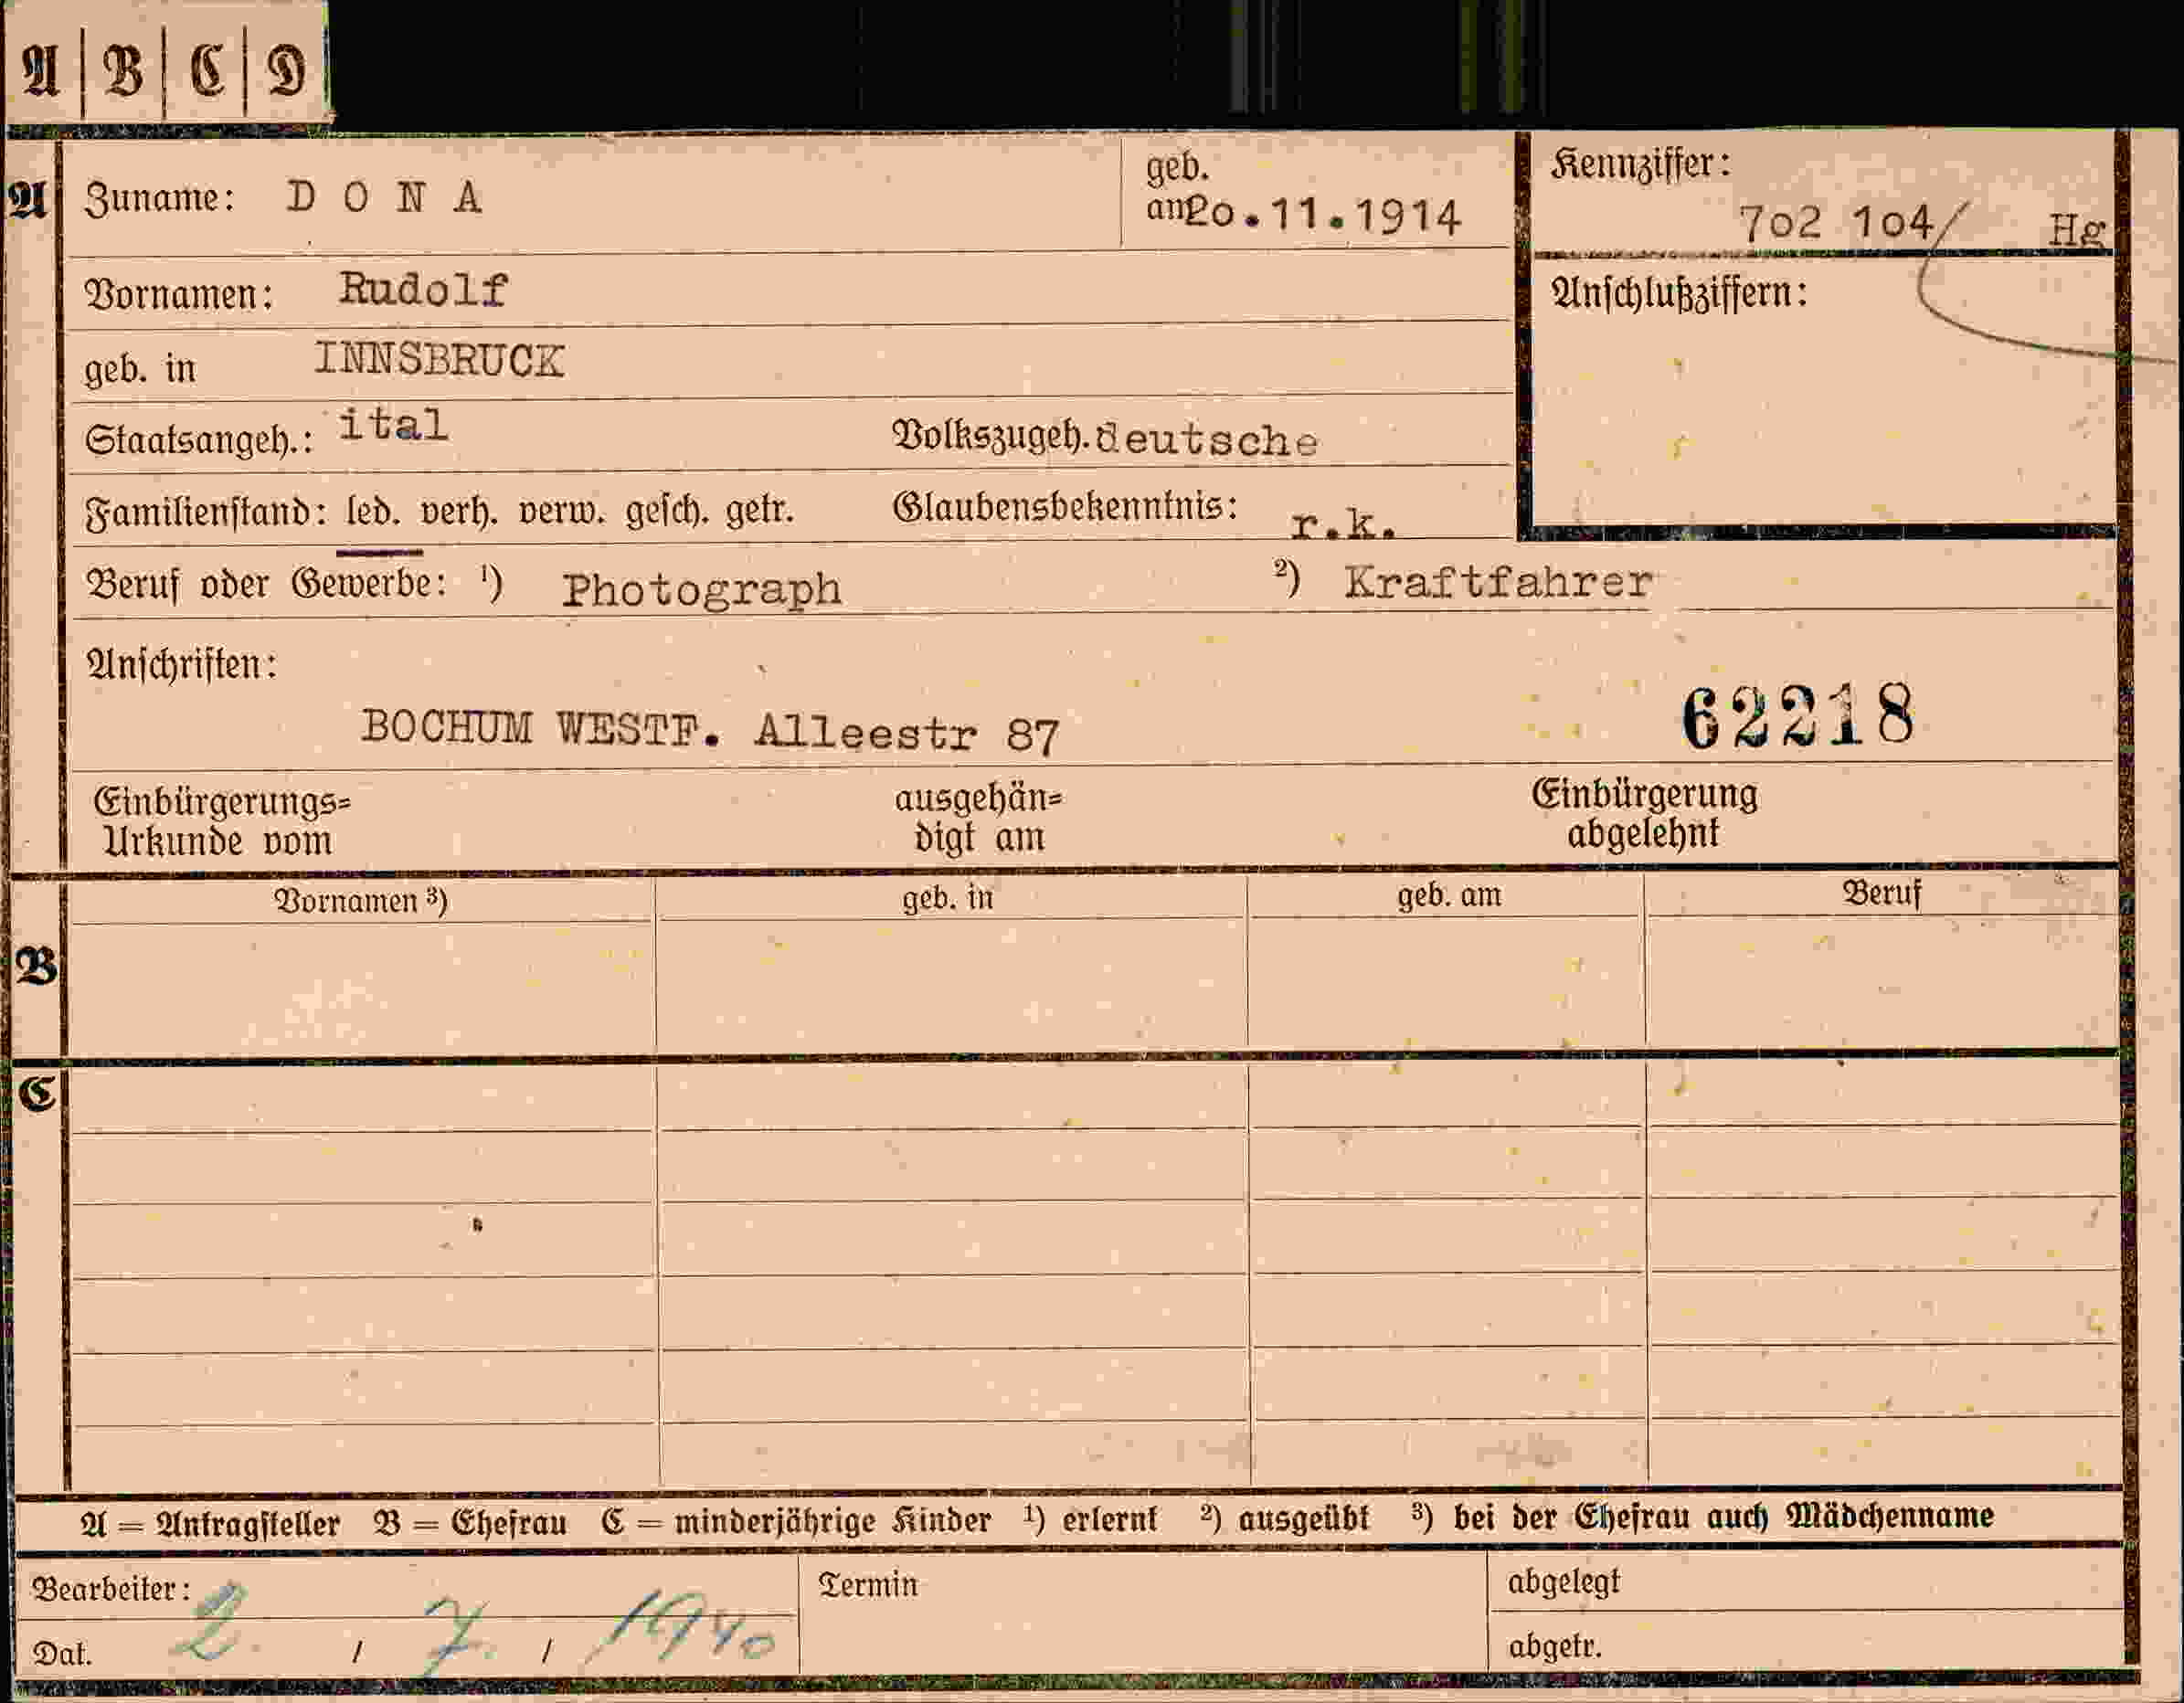 A | B | C | D
A Zuname: D O N A
geb.
am 20.11.1914
Kennziffer:
7o2 1o4/ Hg
Vornamen: Rudolf
Anschlußziffern:
geb. in INNSBRUCK
Staatsangeh.: ital Volkszugeh. deutsche
Familienstand: led. verh. verw. gesch. getr. Glaubensbekenntnis: r.k.
Beruf oder Gewerbe: ¹) Photograph ²) Kraftfahrer
Anschriften:
62218
BOCHUM WESTF. Alleestr 87
Einbürgerungs=
Urkunde vom
ausgehän=
digt am
Einbürgerung
abgelehnt
Vornamen ³) geb. in geb. am Beruf
B
C
A = Antragsteller B = Ehefrau C = minderjährige Kinder ¹) erlernt ²) ausgeübt ³) bei der Ehefrau auch Mädchenname
Bearbeiter:
Dat. 2. / 7. / 1940
Termin
abgelegt
abgetr.